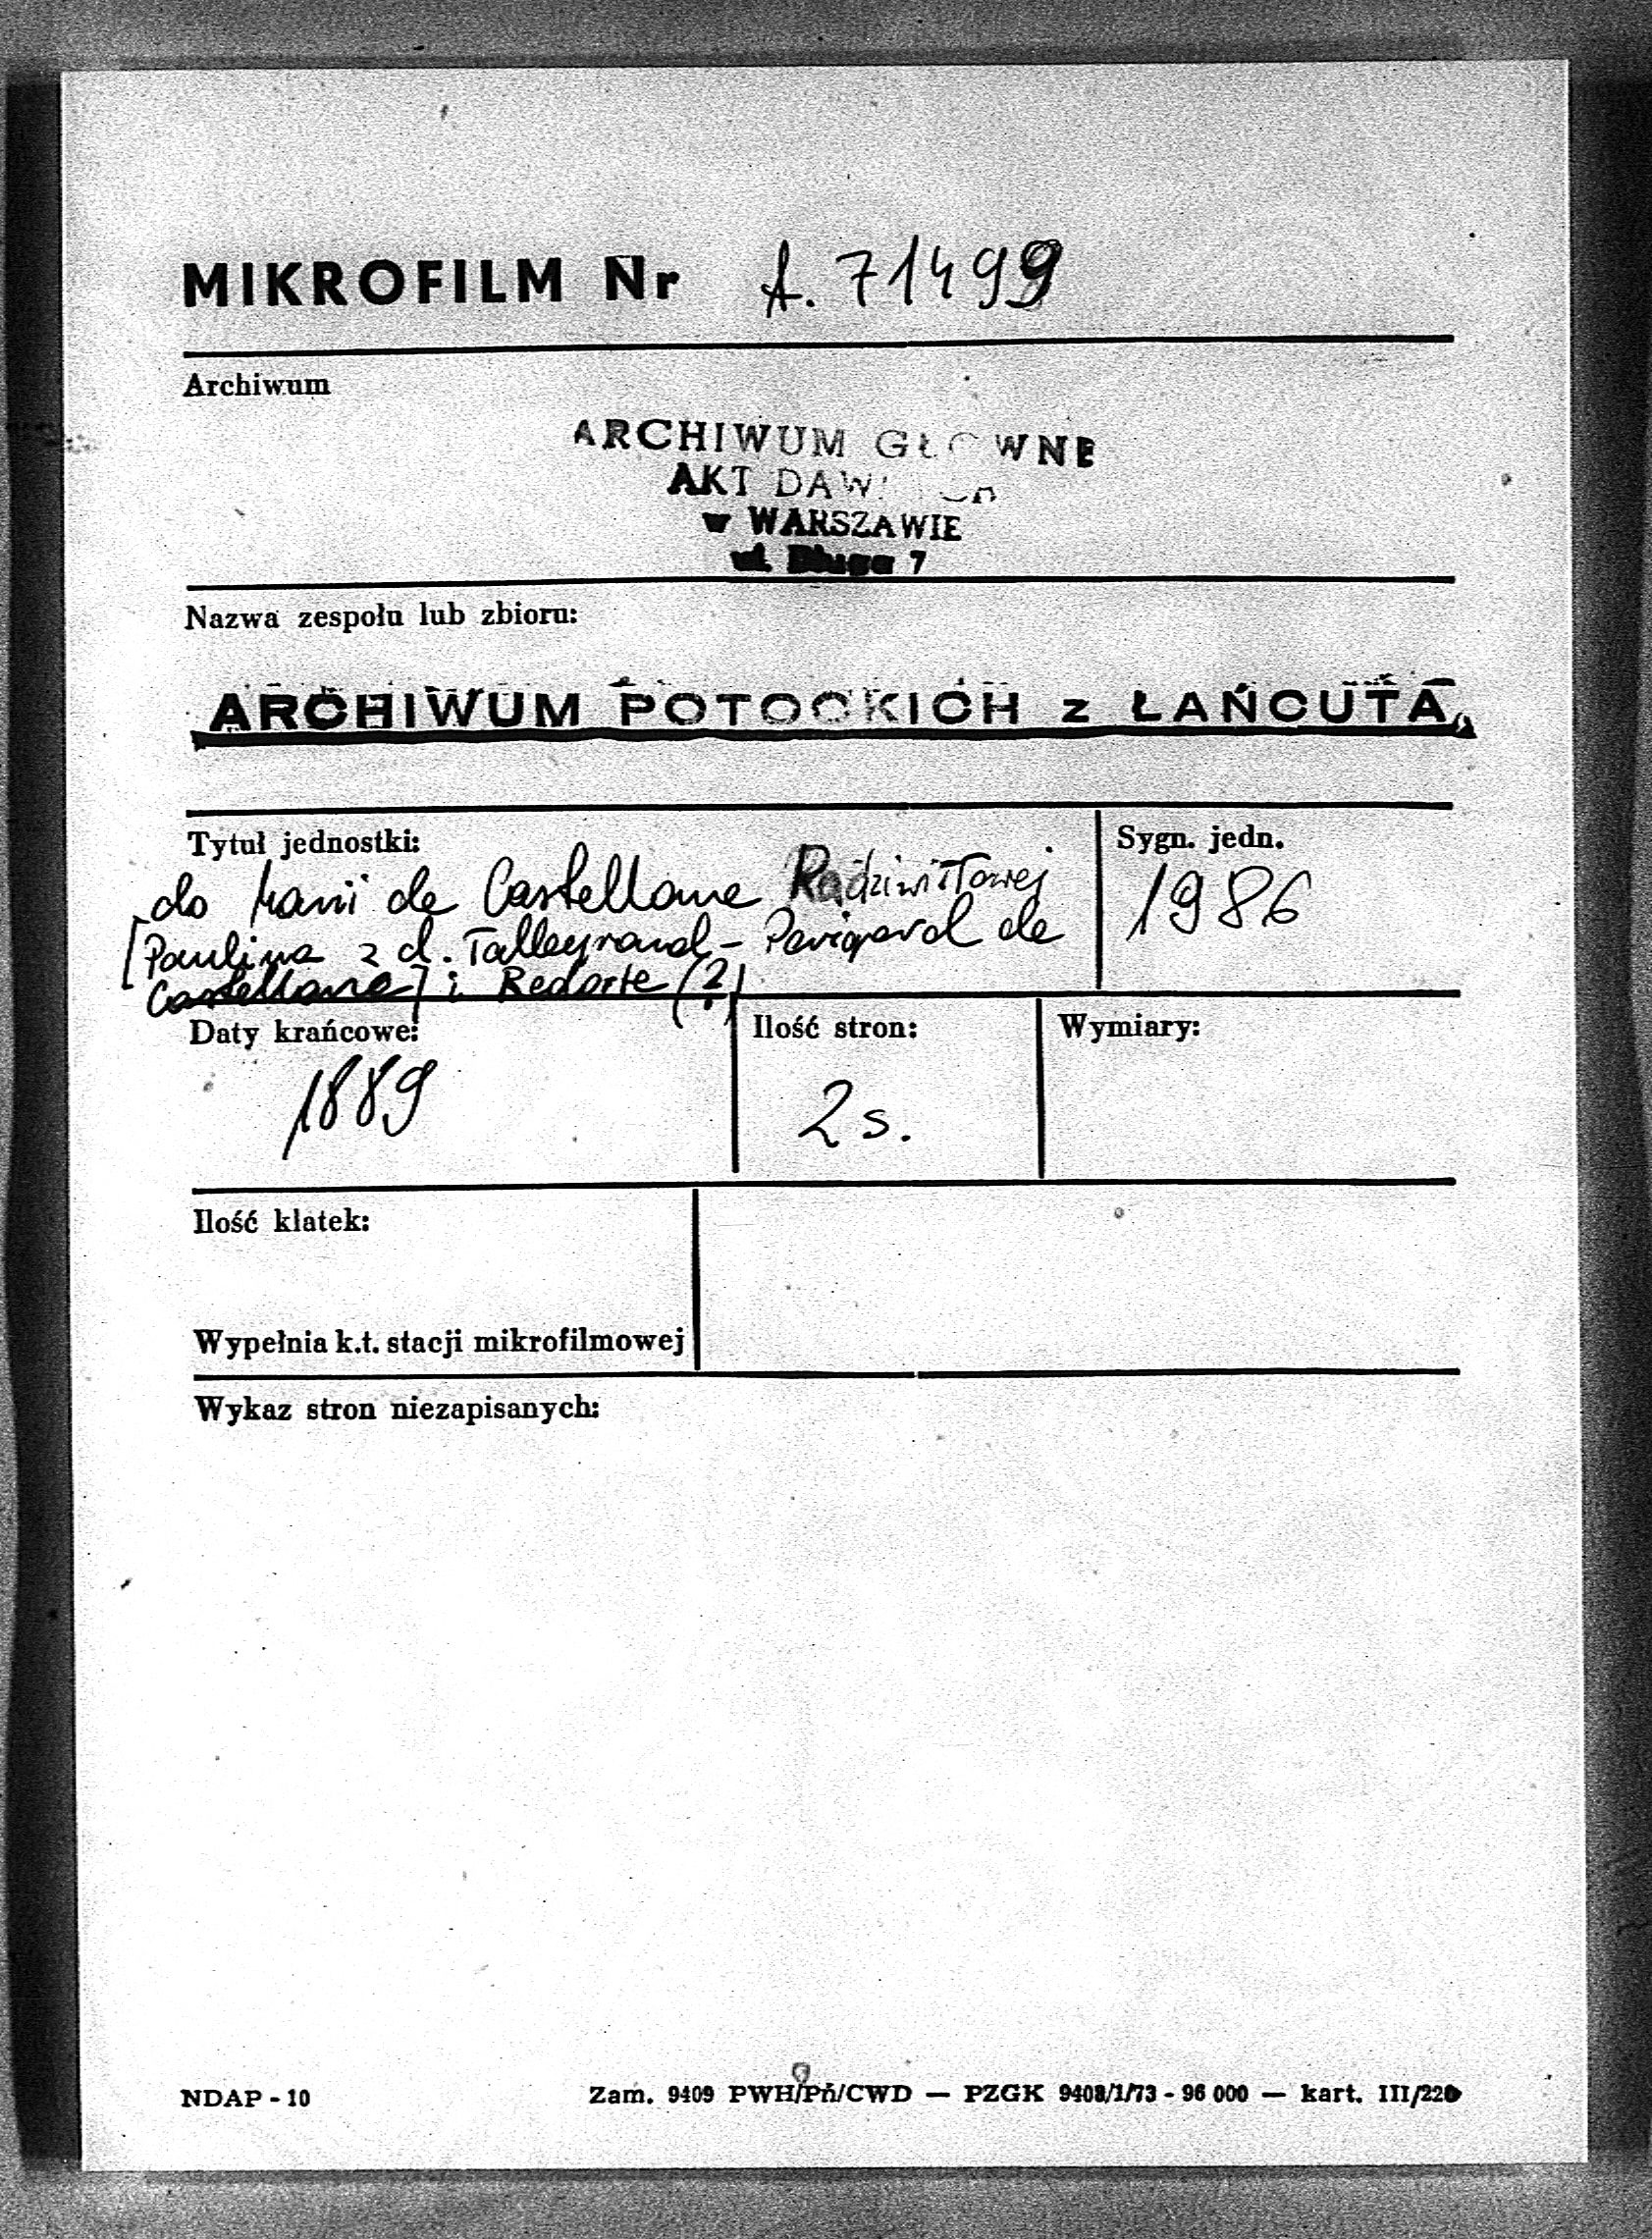 MIKROFILM Nr A. 71499
Archiwum
ARCHIWUM GŁOWNE
AKT DAW
w WARSZAWIE
ul. Długa 7
Nazwa zespołu lub zbioru:
ARCHIWUM POTOCKICH z ŁAŃCUTA
Tytuł jednostki:
do Marii de Castellane Radziwiłłowej
[Paulina z d. Talleyrand - Perigord de
Castellane] i Redorte (?)
Sygn. jedn.
1986
Daty krańcowe:
1889
Ilość stron:
2 s.
Wymiary:
Ilość klatek:
Wypełnia k.t. stacji mikrofilmowej
Wykaz stron niezapisanych:
NDAP - 10
Zam. 9409 PWH/Pń/CWD — PZGK 9408/1/73 - 96 000 — kart. III/220